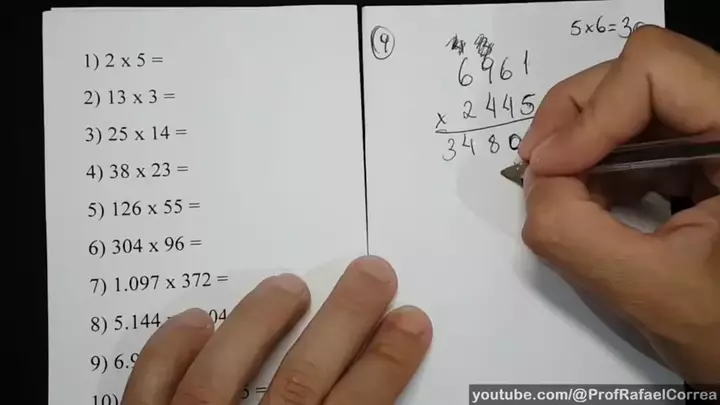 1) 2 x 5 =
2) 13 x 3 =
3) 25 x 14 =
4) 38 x 23 =
5) 126 x 55 =
6) 304 x 96 =
7) 1.097 x 372 =
8) 5.144 04
9) 6.9
10) 5 =
9
5x6=3
6961
x 2445
3480
youtube.com/@ProfRafaelCorrea